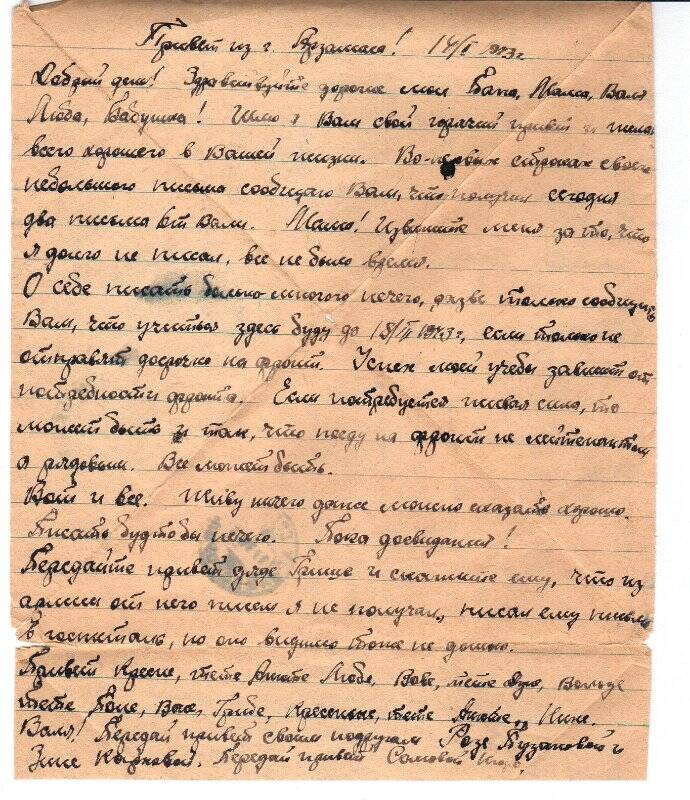 Привет из г. Арзамаса! 14/I 1943 г
Добрый день! Здравствуйте дорогие мои Папа, Мама, Валя
Люба, Бабушка! Шлю я Вам свой горячий привет и желаю
всего хорошего в Вашей жизни. Во-первых строках своего
небольшого письма сообщаю Вам, что получил сегодня
два письма от Вали. Мама! Извините меня за то, что
я долго не писал, все не было время.
О себе писать больно многого нечего, разве только сообщить
Вам, что учиться здесь буду до 1943 г, если только не
отправят досрочно на фронт. Успех моей учебы зависит от
потребности фронта. Если потребуется живая сила, то
может быть и так, что поеду на фронт не лейтенантом
а рядовым. Все может быть.
Вот и все. Живу ничего даже можно сказать хорошо.
Писать будто бы нечего. Пока досвидания!
Передайте привет дяде Грише и скажите ему, что из
армии от него писем я не получал, писал ему письмо
в госпиталь, но оно видимо тоже не дошло.
Привет Крёсне, тете Анюте, Любе, Вове, тете Дуне, Володе
тете Поле, Васе, Грише, Крёсеньке, тете Анюте, Нине.
Валя! Передай привет своим подругам Розе Пузановой и
Зине Передай привет Сомовой